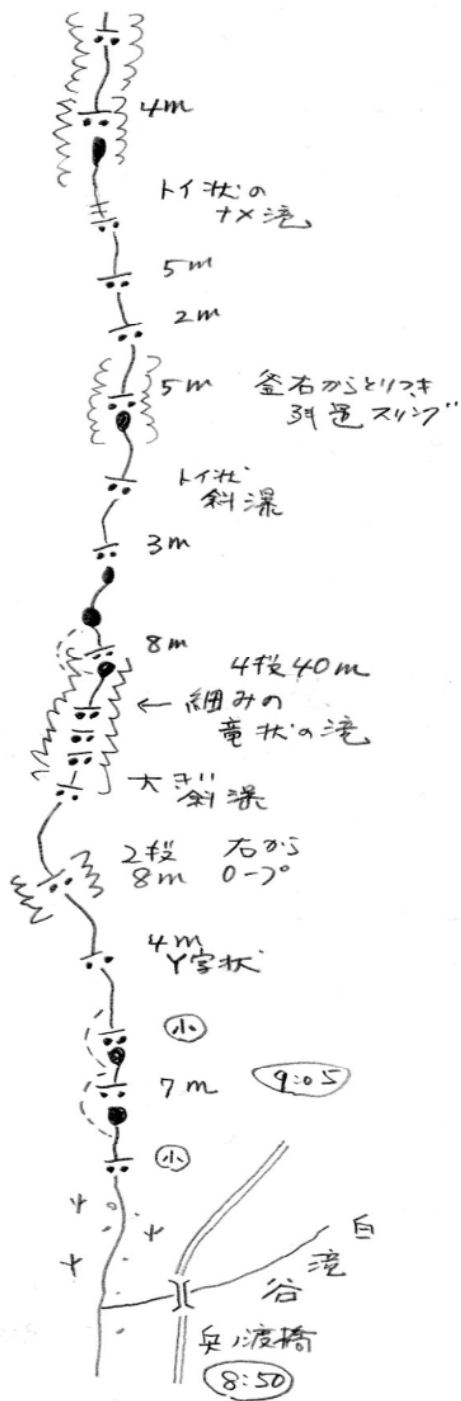 4m
トイ状の
ナメ滝
5m
2m
5m 釜右からとりつき
残置スリング
トイ状
斜瀑
3m
8m
4段40m
← 細みの
竜状の滝
斜瀑
2段 右から
8m ロープ
4m
Y字状
小
7m 9:05
小
白
滝
谷
兵ノ渡橋
8:50